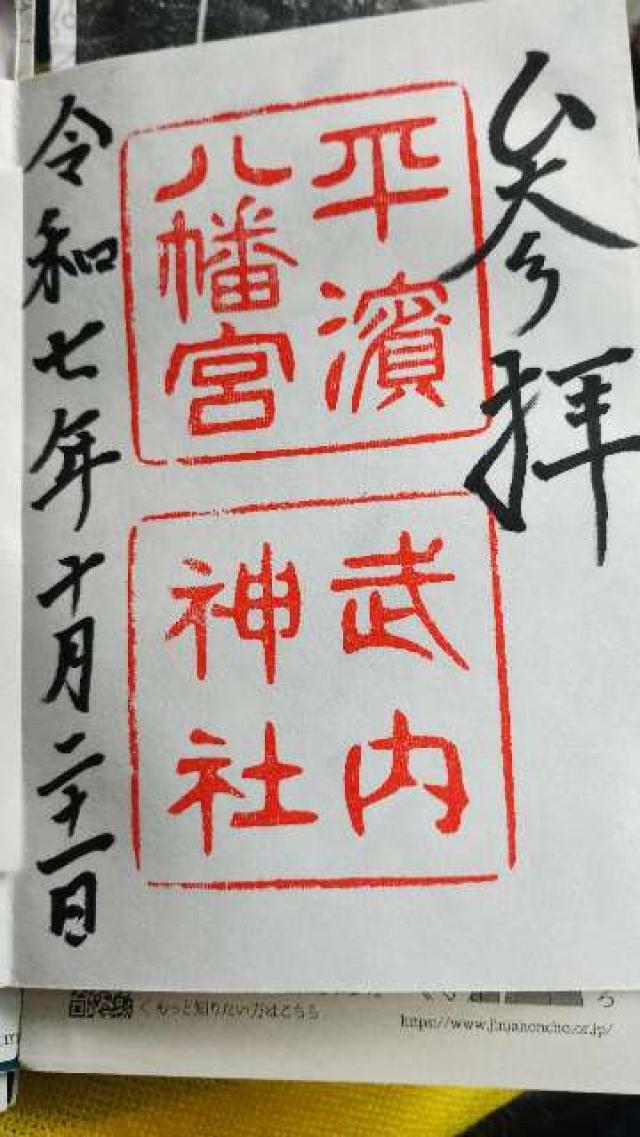 参拝
平濱
八幡宮
武内
神社
令和七年十月二十一日
くもっと知りたい方はこちら
https://www.jinjahoncho.or.jp/